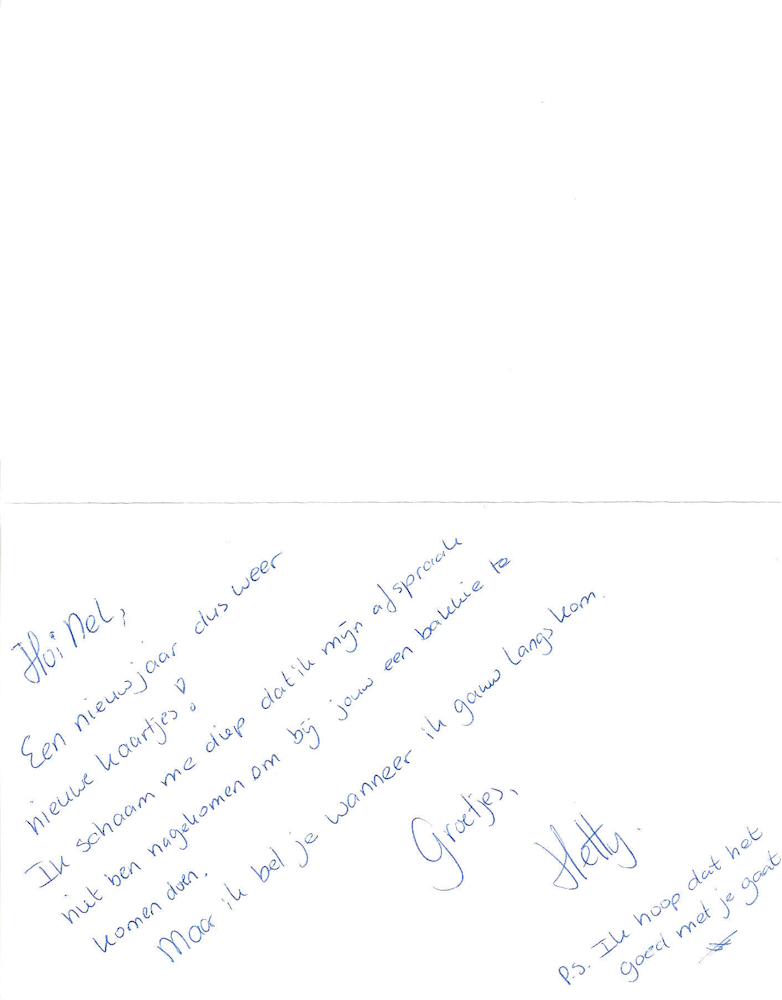 Hoi Nel,
Een nieuw jaar dus weer
nieuwe kaartjes!
Ik schaam me diep dat ik mijn afspraak
niet ben nagekomen om bij jouw een bakkie te
komen doen.
Maar ik bel je wanneer ik gauw langs kom.
Groetjes,
Hetty.
P.S. Ik hoop dat het
goed met je gaat